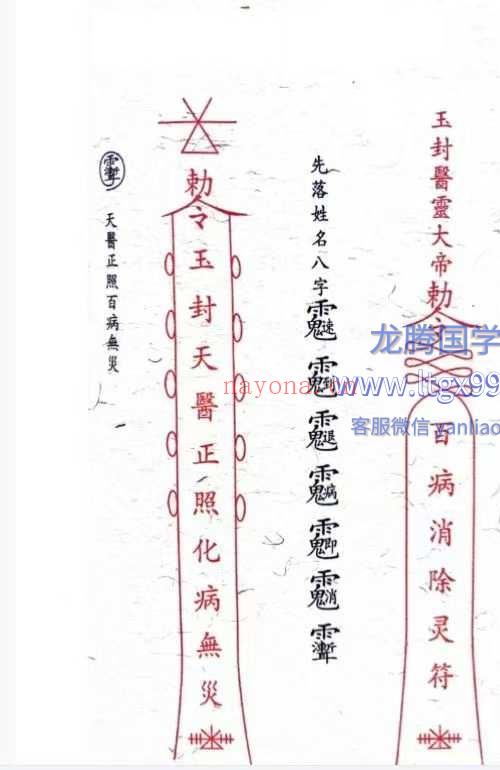 玉封醫靈大帝勅令百病消除灵符
先落姓名八字
勅令玉封天醫正照化病無災
天醫正照百病無災
龙腾国学
www.ltgx99
客服微信yanliao